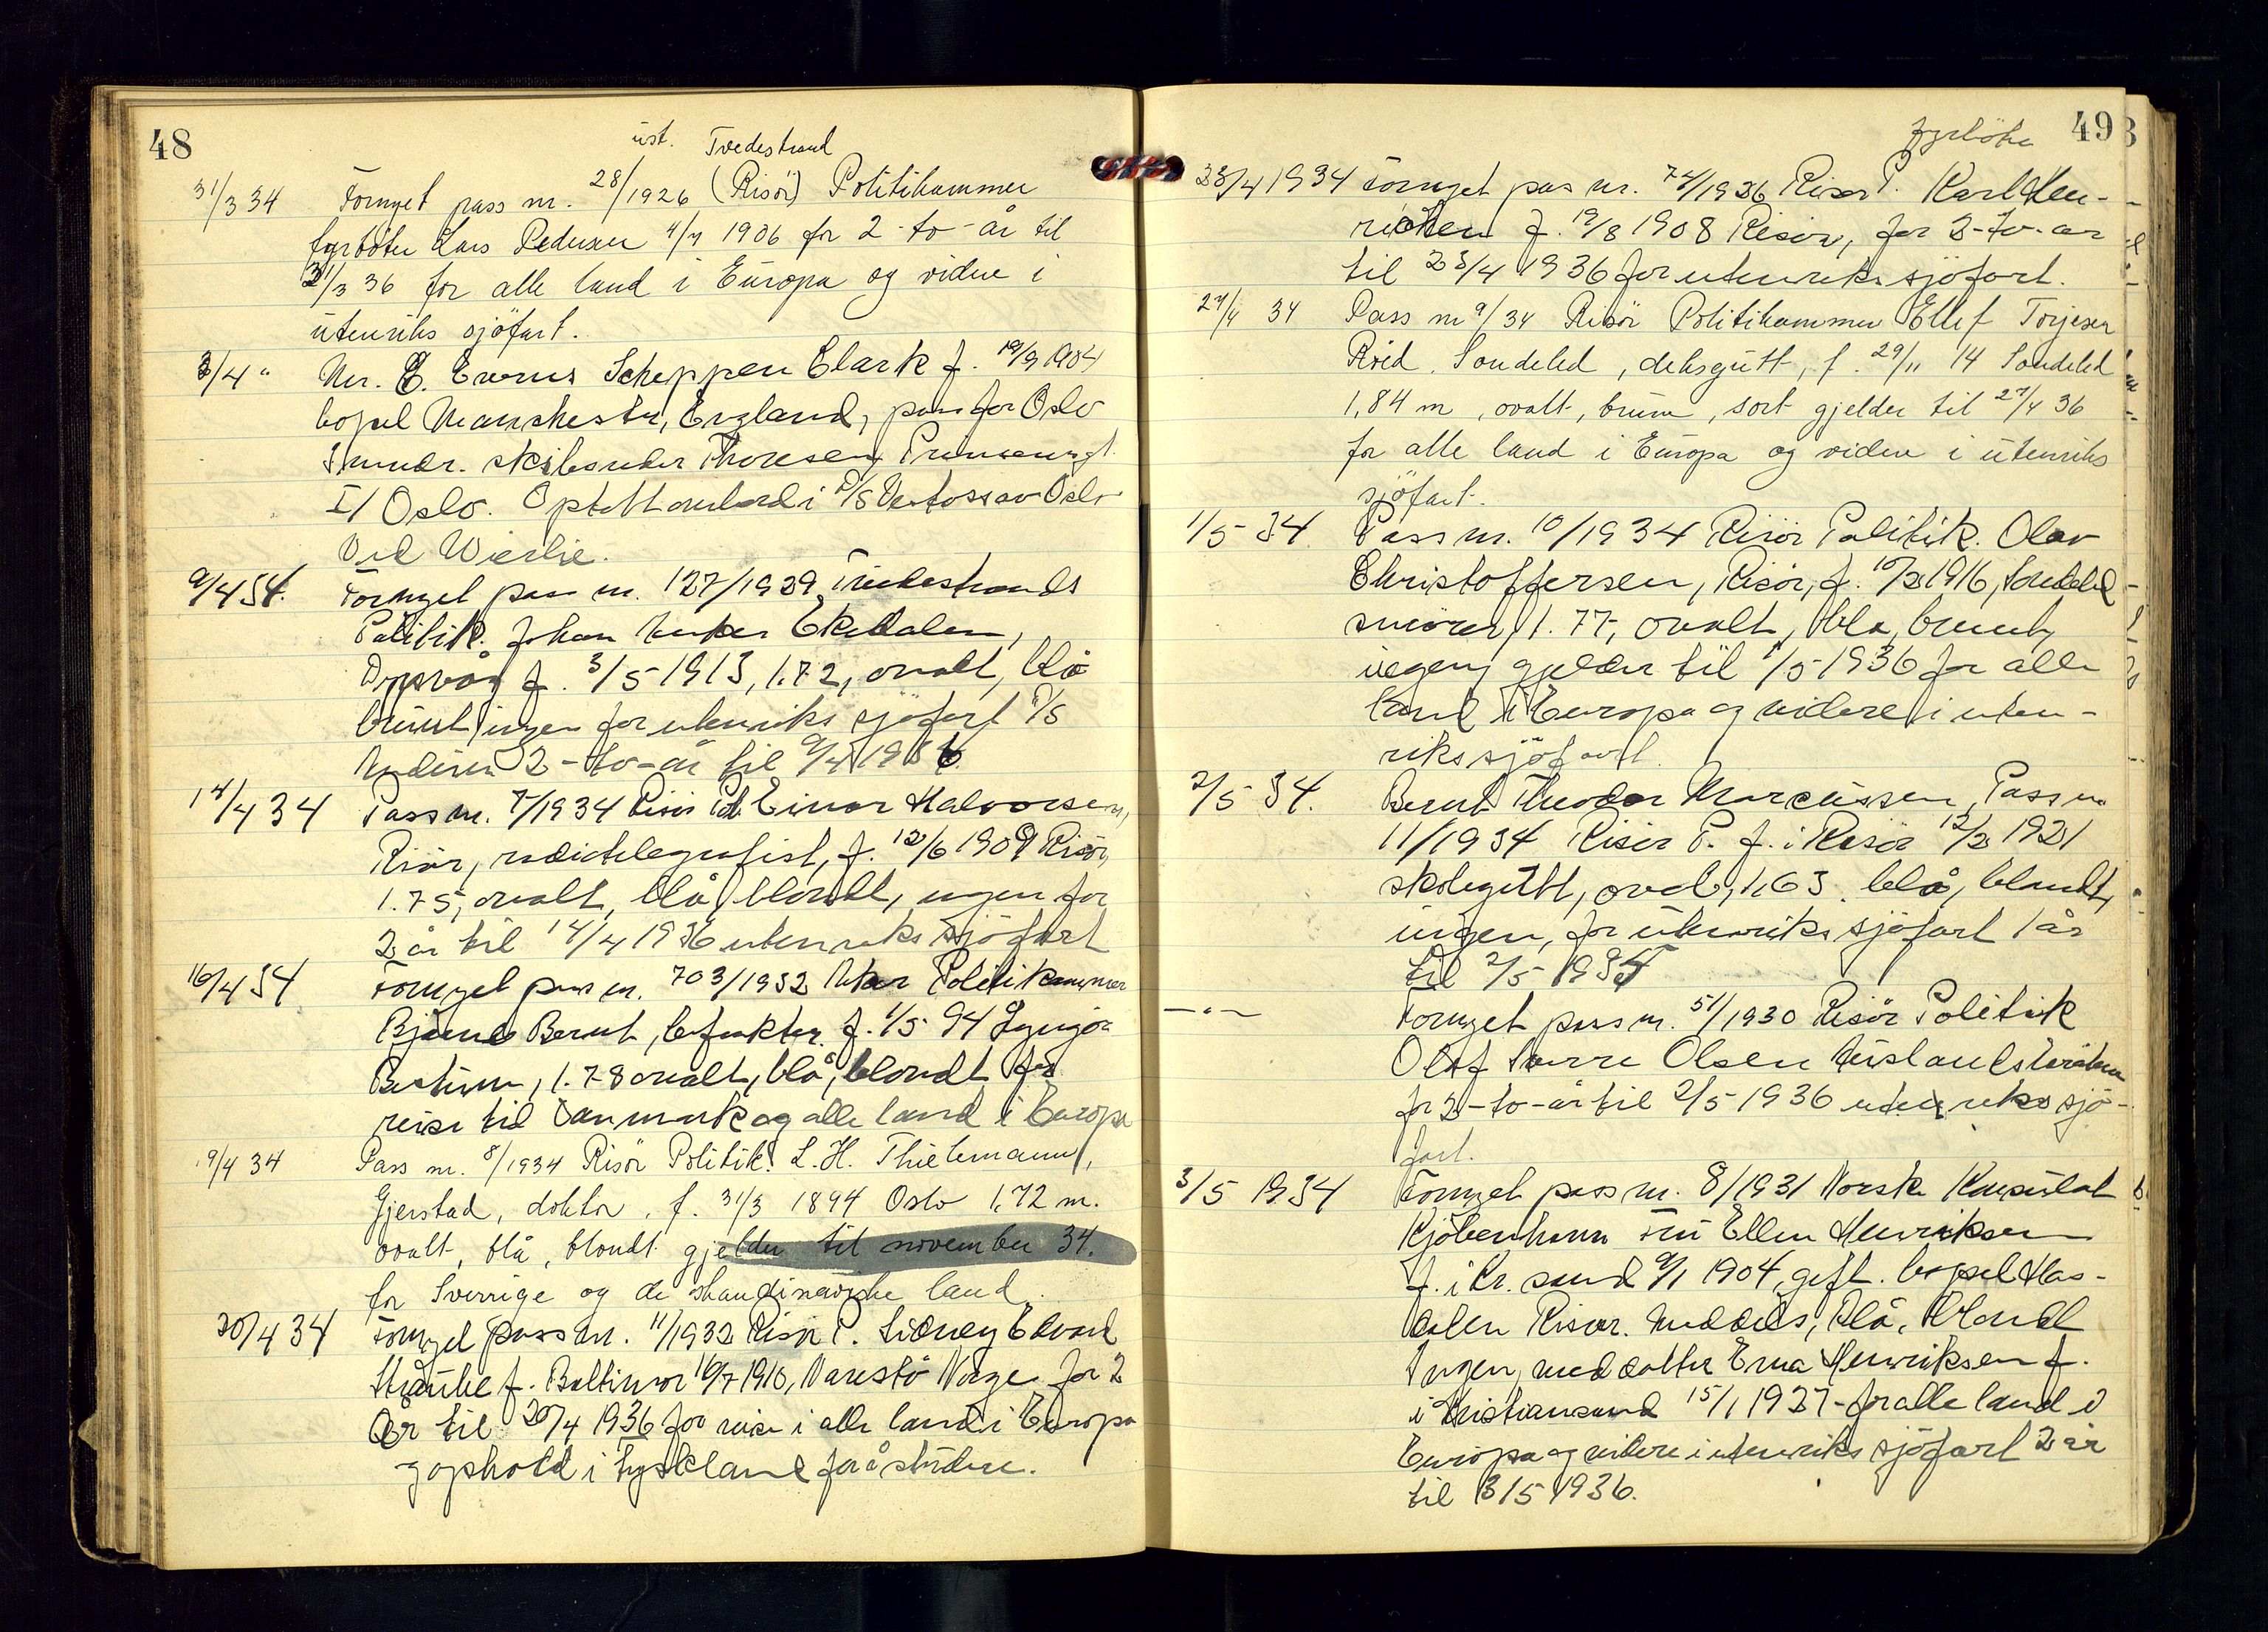 48
üst. Tvedestrand
31/3 34 Fornyet pass nr. 28/1926 (Risör) Politikammer
fyrböter Lars Pedersen 4/7 1906 for 2-to-år til
31/3 36 for alle land i Europa og videre i
utenriks sjöfart.
3/4 " Mr. E. Scheppen Clark f. 19/9 1904
bopel Manchester, England, pass for Oslo
skibsreder Thoresen
I/ Oslo. Optatt ombord i D/S av Oslo
Ved
9/4 34. Fornyet pass nr. 127/1929 Tvedestrands
Politik. Johan Ekedalen,
f. 3/5 1913, 1.72, ovalt, blå
brunt ingen for utenriks sjöfart D/S
2-to-år til 9/4 1936
14/4 34 Pass nr. 7/1934 Risör Pol. Einar Halvorsen,
Risör, radiotelegrafist, f. 12/6 1909 Risör,
1.75, ovalt, blå, blondt, ingen for
2 år til 14/4 1936 utenriks sjöfart
16/4 34 Fornyet pass nr. 703/1932 Aker Politikammer
Bjarne Bernt, befrakter. f. 1/5 94 Lyngör
Bestum, 1.78 ovalt, blå, blondt for
reise til Danmark og alle land i Europa
19/4 34 Pass nr. 8/1934 Risör Politik. L. H. Thielemann,
Gjerstad, doktor, f. 31/3 1894 Oslo 1,72 m.
ovalt, blå, blondt gjelder til november 34.
for Sverrige og de skandinaviske land.
20/4 34 Fornyet pass nr. 11/1932 Risör P. Sidney Edvard
f. Baltimor 16/7 1910, Narestö Norge for 2
År til 20/4 1936 for reise i alle land i Europa
og ophold i Tyskland for å studere.
49
fyrböter
23/4 1934 Fornyet pas nr. 74/1926 Risör P. Karl Hen-
richen f. 19/8 1908 Risör, for 2-to-år
til 23/4 1936 for utenriks sjöfart.
27/4 34 Pass nr 9/34 Risör Politikammer Ellef Torjesen
Röed, Söndeled, deksgutt, f. 29/11 14 Söndeled
1,84 m, ovalt, brune, sort gjelder til 27/4 36
for alle land i Europa og videre i utenriks
sjöfart.
1/5 34 Pass nr. 10/1934 Risör Politik. Olav
Christoffersen, Risör, f. 10/3 1916, Söndeled
smörer, 1.77, ovalt, blå, brunt,
ingen, gjelder til 1/5 1936 for alle
land i Europa og videre i uten-
riks sjöfart.
2/5 34. Bernt Theodor Marcussen, Pass nr.
11/1934 Risör P. f. i Risör 12/3 1921
skolegutt, oval, 1,63. blå, blondt,
ingen, for utenriks sjöfart 1 år
til 2/5 1935
—"— Fornyet pass nr. 51/1930 Risör Politik
Olaf Sverre Olsen
for 2-to-år til 2/5 1936 utenriks sjö-
fart.
3/5 1934 Fornyet pass nr. 8/1931 Norsk Konsulat
Kjöbenhavn Fru Ellen Henriksen
f. i Kr. sand 9/1 1904, gift. bopel Has-
dalen Risör. middels, blå, blondt
Ingen, med datter Erna Henriksen f.
i Kristiansand 15/1 1927 - for alle land i
Europa og videre i utenriks sjöfart 2 år
til 3/5 1936.